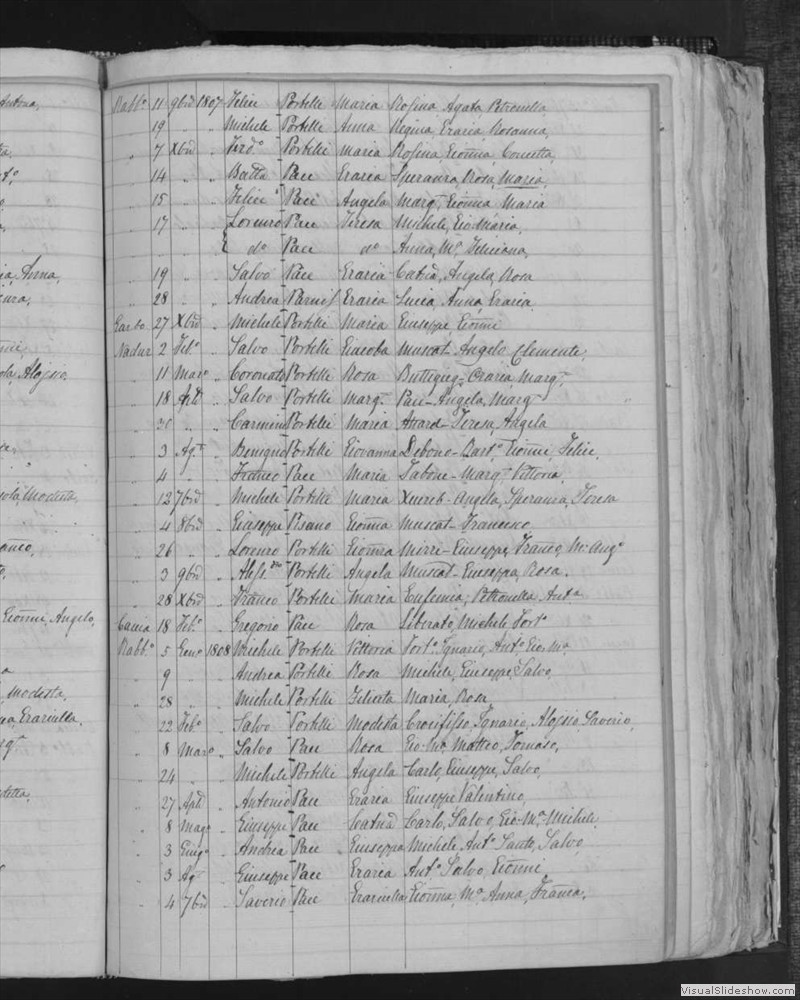 Rabb.o 11 9bre 1807 Felice Portelli Maria Rosina Agata Petronilla,
19 " " Michele Portelli Anna Regina, Grazia, Rosanna,
" 7 Xbre " Ferd.o Portelli Maria Rosina, Gionna, Concetta,
" 14 " Batta Pace Grazia Speranza, Rosa, Maria,
" 15 " " Felice Pace Angela Marg.a, Gionna Maria
" 17 " " Lorenzo Pace Teresa Michele, Gio Maria,
E do Pace do Anna, M.a Feliciana,
" 19 " " Salvo Pace Grazia Angela, Rosa
" 28 " " Andrea Parnis Grazia Lucia, Anna, Grazia,
Garbo 27 Xbre " Michele Portelli Maria Giuseppe Gionni
Nadur 2 Feb.o " Salvo Portelli Giacoba Muscat- Angelo, Clemente,
" 11 Marzo " Coronato Portelli Rosa Buttigieg- Grazia, Marg.a,
" 18 Aple " Salvo Portelli Marg.a Pace- Angela, Marg.a
" 30 " " Carmine Portelli Maria Attard- Teresa, Angela
" 3 Ag.o " Benigno Portelli Giovanna Debono- Bart.o Gionni Felice,
" 4 " " Franco Pace Maria Tabone- Marg.a Vittoria,
" 12 7bre " Michele Portelli Maria Xuereb- Angela, Speranza, Teresa
" 4 8bre " Giuseppe Pisano Gionna Muscat- Francesco,
" 26 " " Lorenzo Portelli Gionna Mizzi- Giuseppe, Franco, M.a Ang.a
" 3 9bre " Aless.dro Portelli Angela Muscat- Giuseppa, Rosa,
" 28 Xbre " Franco Portelli Maria Eufemia, Petronilla Anta
Caccia 18 Feb.o " Gregorio Pace Rosa Liberato, Michele Fort.o
Rabb.o 5 Gen.o 1808 Michele Portelli Vittoria Fort.o Ignazio, Ant.o Gio. Ma.
" 9 " Andrea Portelli Rosa Michele, Giuseppe, Salvo,
" 28 " " Michele Portelli Felicita Maria, Rosa
" 22 Feb.o " Salvo Portelli Modesta Crocifisso, Ignazio, Aloisio, Saverio,
" 8 Marzo " Salvo Pace Rosa Gio. Ma. Matteo, Tomaso,
" 24 " Michele Portelli Angela Carlo, Giuseppe, Salvo,
" 27 Aple " Antonio Pace Grazia Giuseppe Valentino,
" 8 Mag.o " Giuseppe Pace Catna Carlo, Salvo, Gio. Ma. Michele,
" 3 Giug.o " Andrea Pace Giuseppa Michele, Ant.o Santo, Salvo,
" 3 Ag.o " Giuseppe Pace Grazia Ant.o Salvo, Gionni
" 4 7bre " Saverio Pace Graziella Gionna, M.a, Anna, Franca,
VisualSlideshow.com